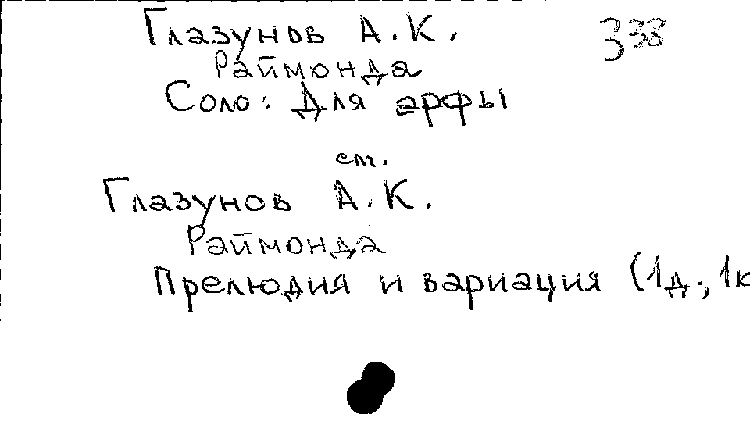 Глазунов А.К. 338
Раймонда
Соло: Для арфы
см.
Глазунов А.К.
Раймонда
Прелюдия и вариация (1д., 1к